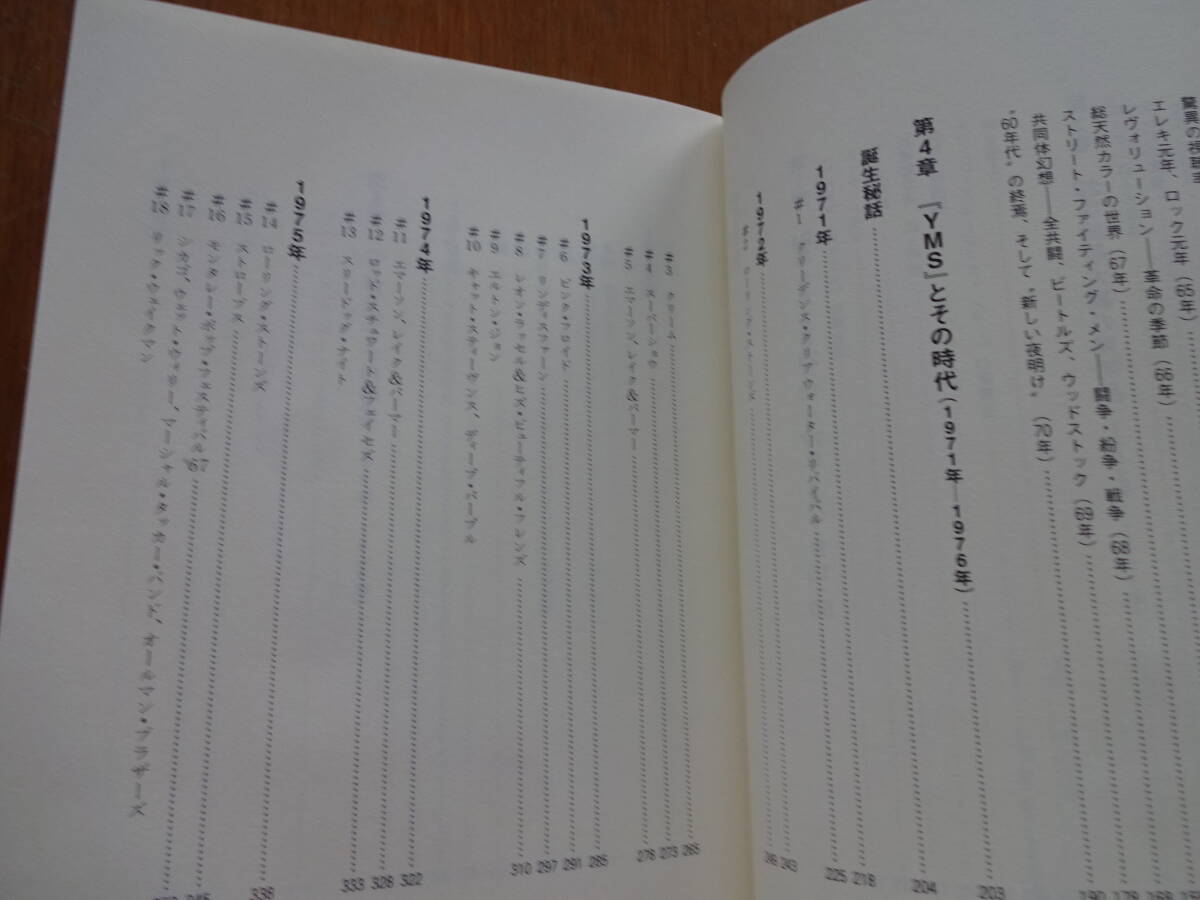 エレキ元年、ロック元年(65年)
レヴォリューション――革命の季節(66年)……168
総天然カラーの世界(67年)……179
ストリート・ファイティング・メン――闘争・紛争・戦争(68年)……190
共同体幻想――全共闘、ビートルズ、ウッドストック(69年)
“60年代”の終焉、そして“新しい夜明け”(70年)……203
第4章 『YMS』とその時代(1971年―1976年)……204
誕生秘話……218
1971年……225
#1 クリーデンス・クリアウォーター・リバイバル……243
1972年
#2 ローリング・ストーンズ
#3 クリーム……265
#4 スーパーショウ……273
#5 エマーソン、レイク&パーマー……278
1973年……285
#6 ピンク・フロイド……291
#7 リンディスファーン……297
#8 レオン・ラッセル&ヒズ・ビューティフル・フレンズ……310
#9 エルトン・ジョン
#10 キャット・スティーヴンス、ディープ・パープル
1974年……322
#11 エマーソン、レイク&パーマー……328
#12 ロッド・スチュワート&フェイセズ……333
#13 スリー・ドッグ・ナイト
1975年……338
#14 ローリング・ストーンズ
#15 ストローブス
#16 モンタレー・ポップ・フェスティバル’67
#17 シカゴ、ウェット・ウィリー、マーシャル・タッカー・バンド、オールマン・ブラザーズ
#18 リック・ウェイクマン